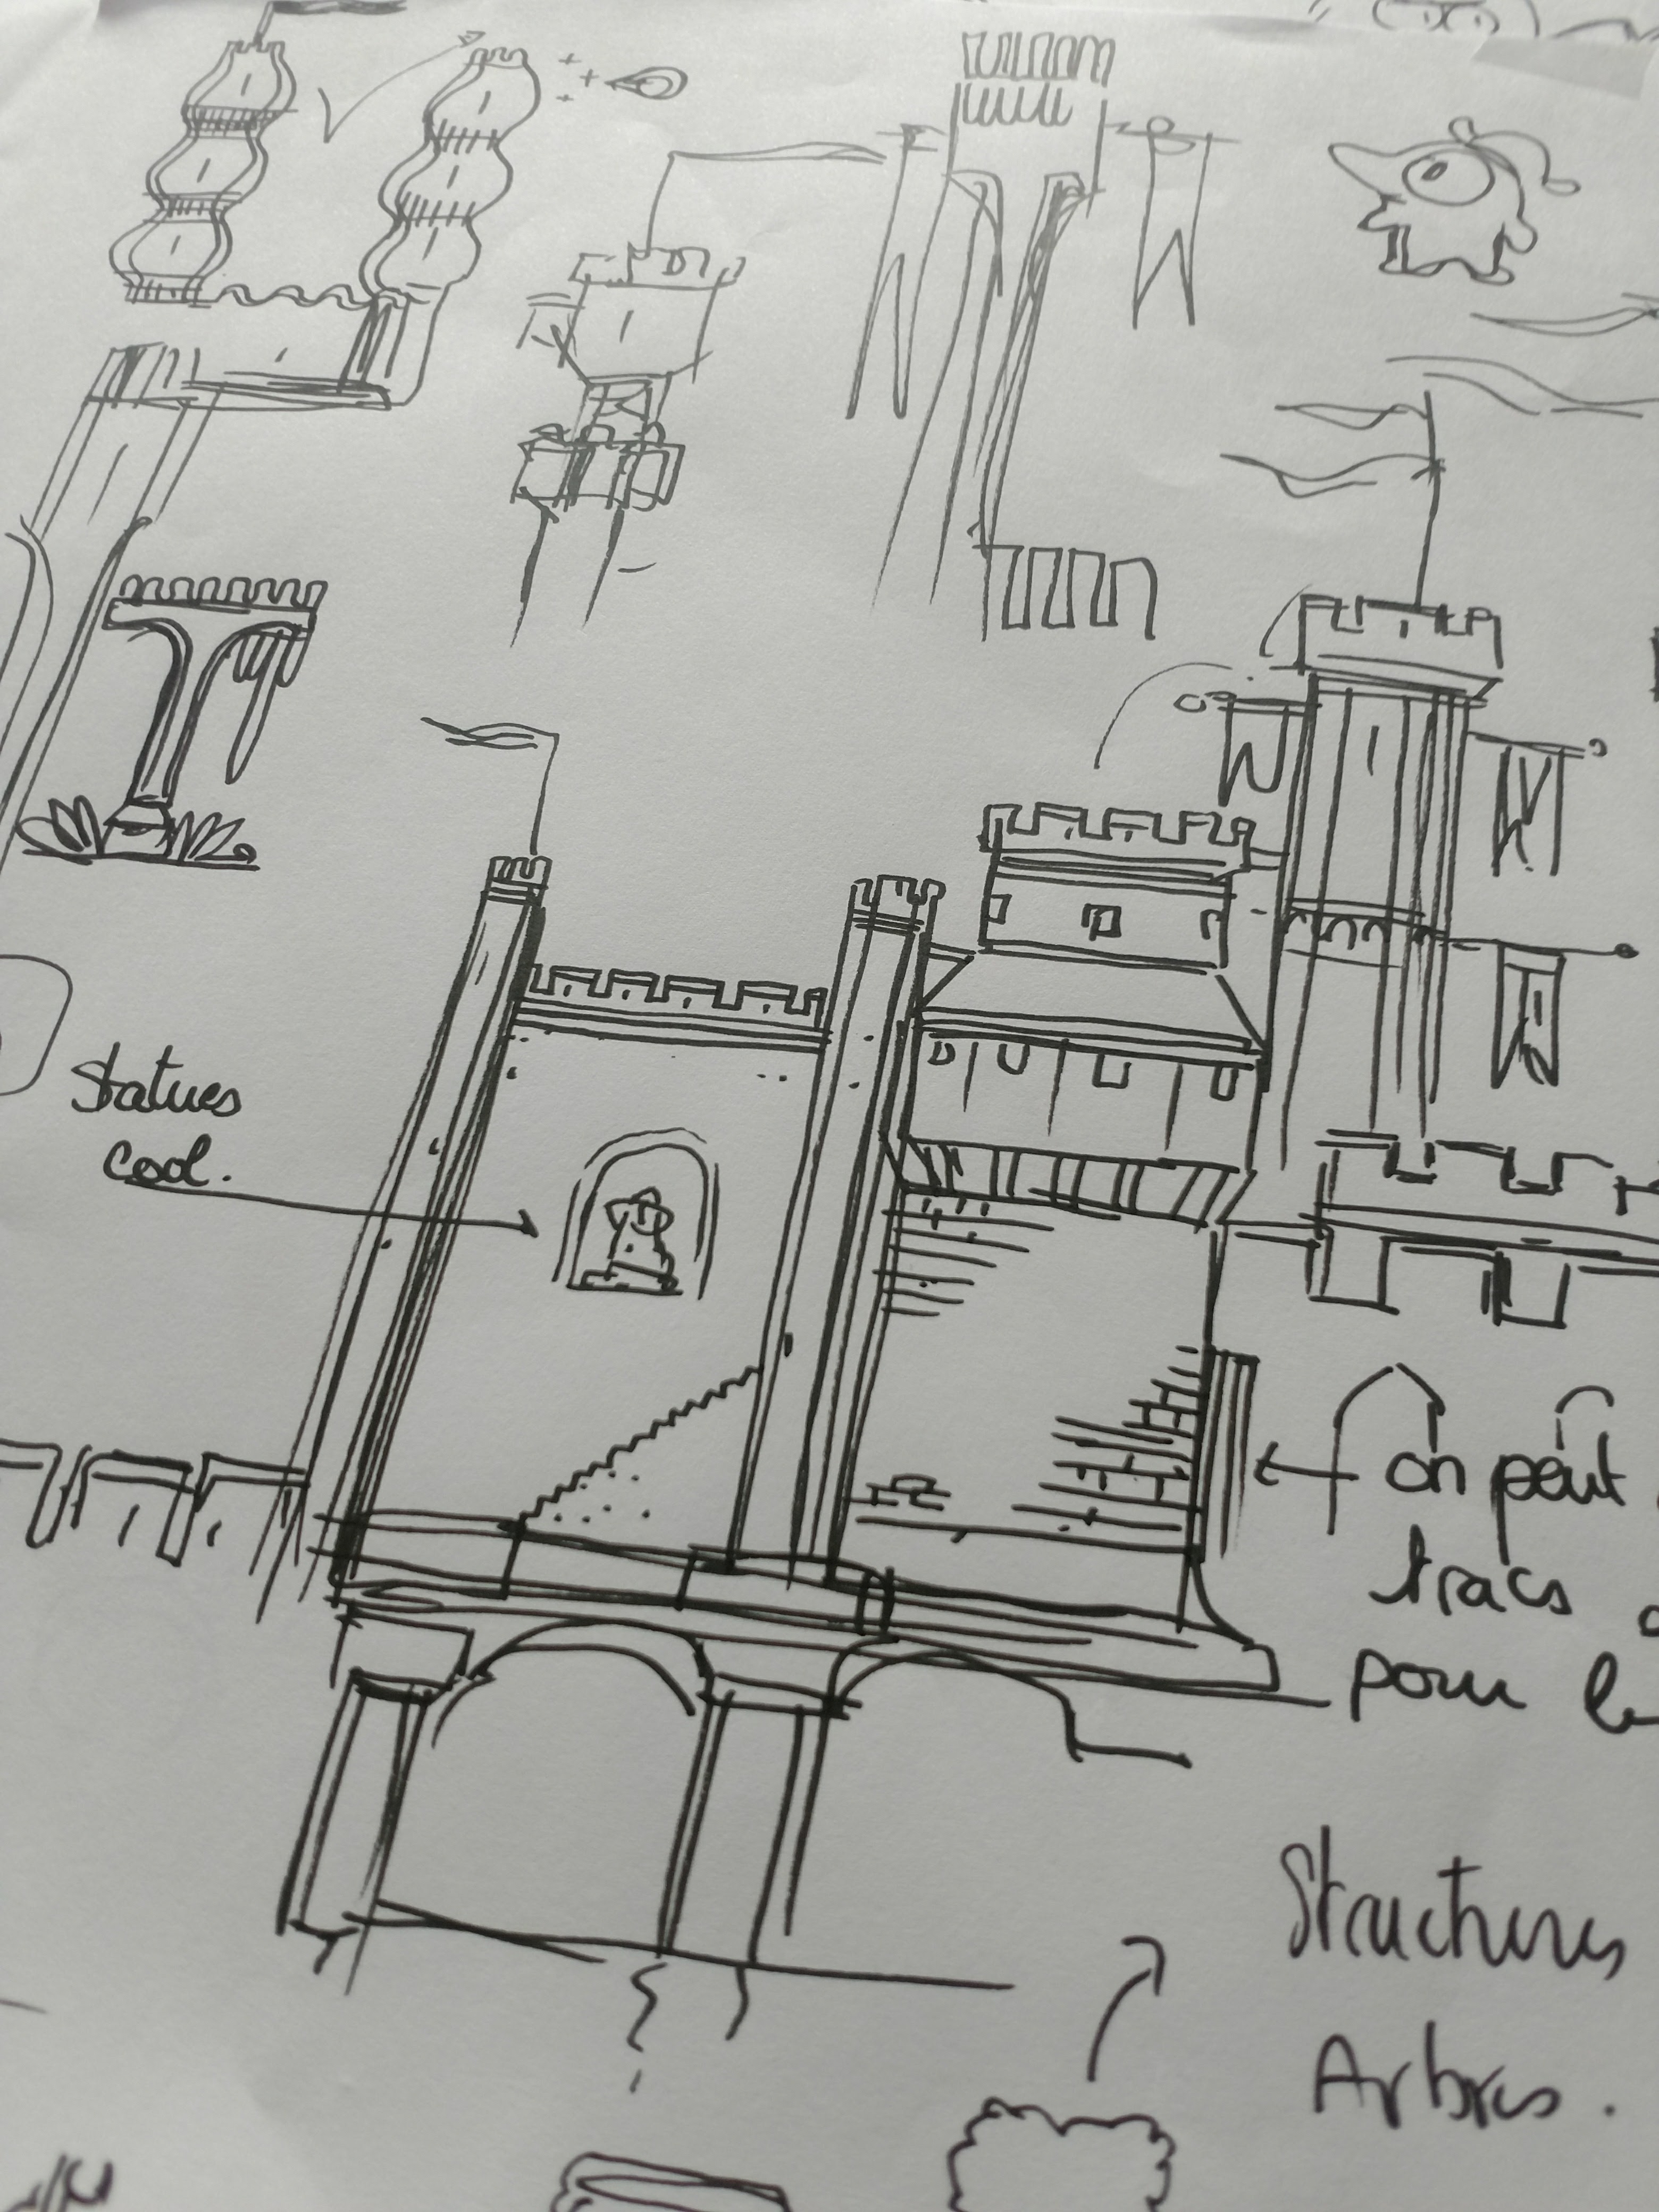 Statues
cool.
on peut
tracs
pour le
Structures
Arbres.